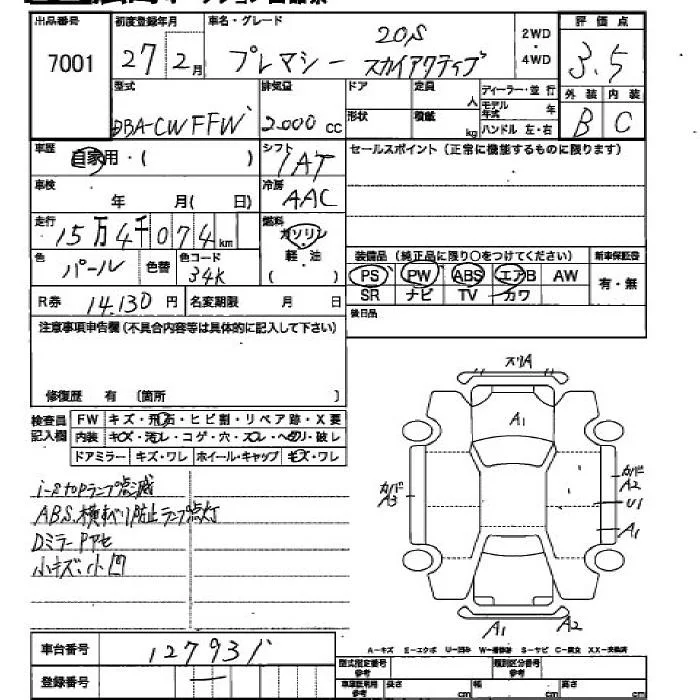 出品番号 初度登録年月 車名・グレード
7001 27 2月 プレマシー 20S スカイアクティブ
2WD・4WD
評価点
3.5
外装 内装
B C
型式 排気量 ドア 定員 人 ディーラー・並行
DBA-CWFFW 2000 cc 形状 積載 kg モデル年式 年
ハンドル 左・右
車歴 自家用・( ) シフト 1AT
セールスポイント(正常に機能するものに限ります)
車検 年 月( 日) 冷房 AAC
走行 15万4千074km 燃料 ガソリン 軽・油 ( )
色 パール 色替 色コード 34K
装備品(純正品に限り○をつけてください) 新車保証書
PS PW ABS エアB AW 有・無
SR ナビ TV カワ
R券 14.130円 名変期限 月 日
後日品
注意事項申告欄(不具合内容等は具体的に記入して下さい)
修復歴 有 〔箇所 〕
検査員記入欄
FW キズ・飛石・ヒビ割・リペア跡・X要
内装 キズ・汚レ・コゲ・穴・スレ・ヘタリ・破レ
ドアミラー キズ・ワレ ホイール・キャップ キズ・ワレ
i-stopランプ点滅
ABS.横すべり防止ランプ点灯
DミラーPアセ
小キズ、小凹
スリA
A1
カバド
A3
カバド
A2
U1
A1
A1 A2
A-キズ E-エクボ U-凹ミ W-補修跡 S-サビ C-腐食 XX-交換済
車台番号 127931
登録番号 一
型式指定番号 参考 類別区分番号 参考
車庫証明用 参考 長さ cm 幅 cm 高さ cm